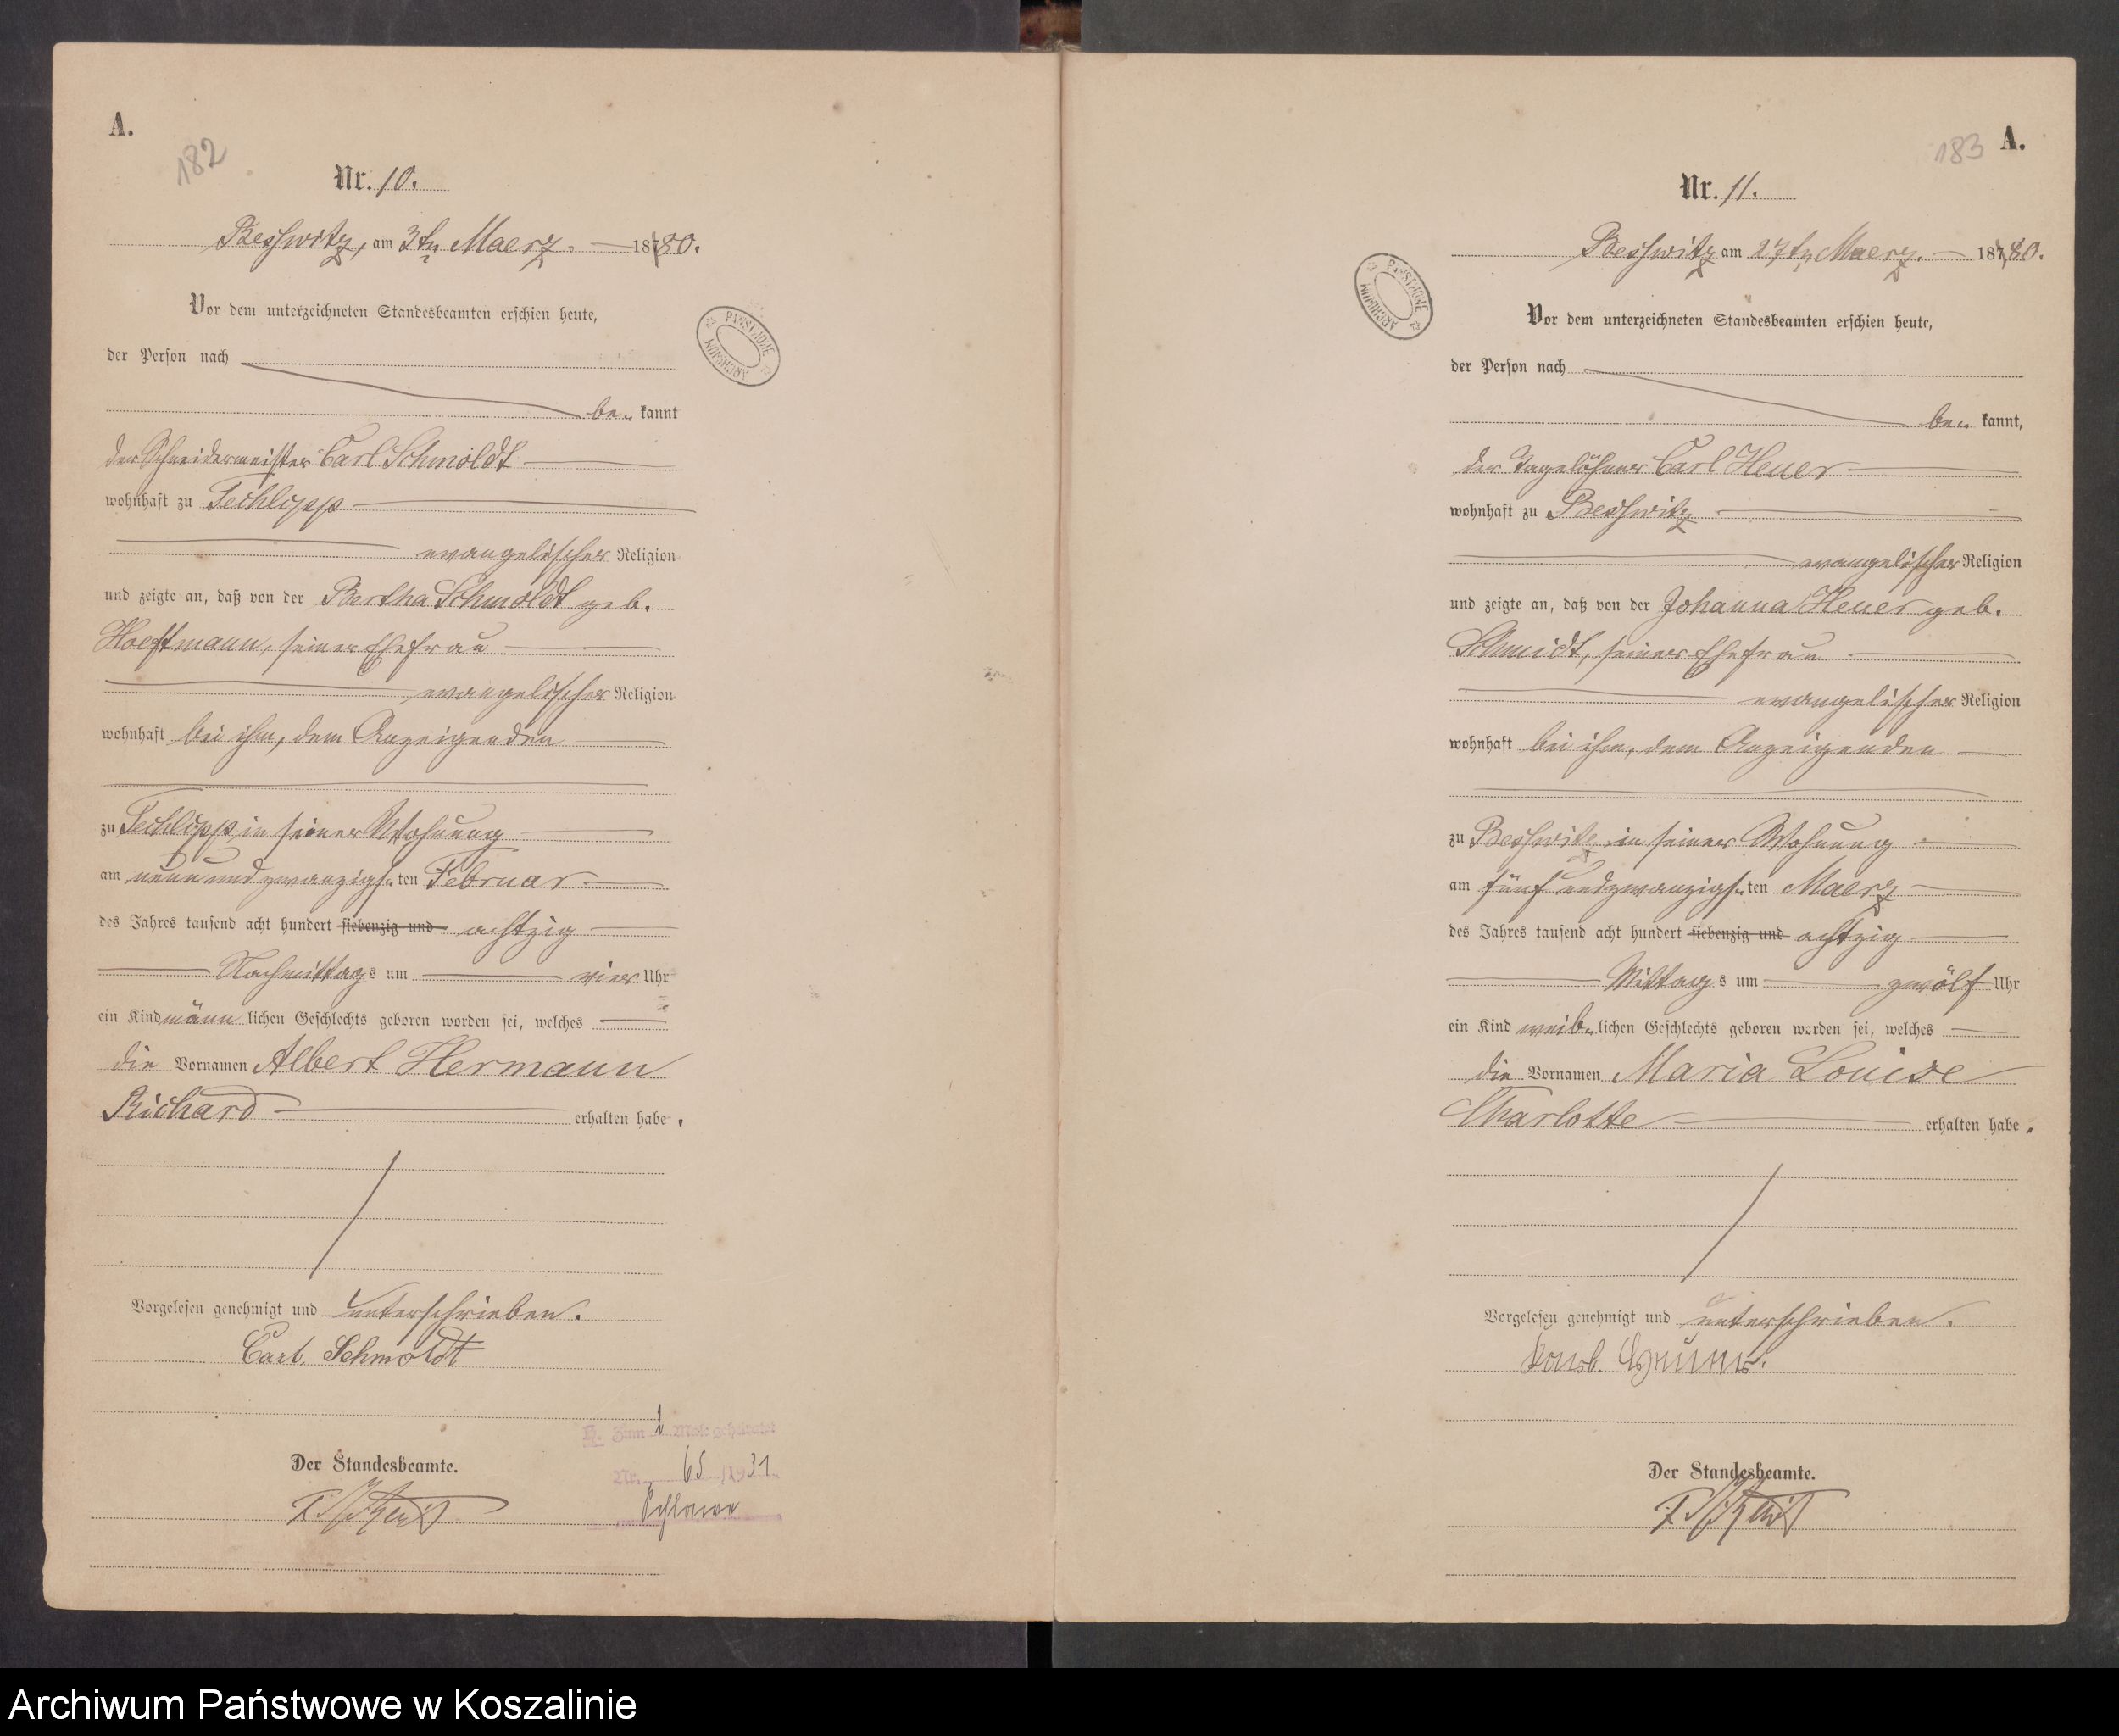 A.
182
Nr. 10.
Besswitz, am 3tn Maerz. 1880.
Vor dem unterzeichneten Standesbeamten erschien heute,
der Person nach
be- kannt
der Schneidermeister Carl Schmoldt
wohnhaft zu Techlipp
evangelischer Religion
und zeigte an, daß von der Bertha Schmoldt geb.
Hoeftmann, seiner Ehefrau
evangelischer Religion
wohnhaft bei ihm, dem Anzeigenden
zu Techlipp in seiner Wohnung
am neun und zwanzigsten Februar
des Jahres tausend acht hundert siebenzig und achtzig
Nachmittags um vier Uhr
ein Kind männlichen Geschlechts geboren worden sei, welches
die Vornamen Albert Hermann
Richard erhalten habe.
Vorgelesen genehmigt und unterschrieben.
Carl. Schmoldt
H. Zum 2 Mal: geheiratet
Nr. 65 /1931
Schlawe
Der Standesbeamte.
PAŃSTWOWE
ARCHIWUM
183
A.
Nr. 11.
Besswitz am 27tn Maerz. 1880.
Vor dem unterzeichneten Standesbeamten erschien heute,
der Person nach
be- kannt,
der Tagelöhner Carl Heuer
wohnhaft zu Besswitz
evangelischer Religion
und zeigte an, daß von der Johanna Heuer geb.
Schmidt, seiner Ehefrau
evangelischer Religion
wohnhaft bei ihm, dem Anzeigenden
zu Besswitz in seiner Wohnung
am fünf und zwanzigsten Maerz
des Jahres tausend acht hundert siebenzig und achtzig
Mittags um zwölf Uhr
ein Kind weiblichen Geschlechts geboren worden sei, welches
die Vornamen Maria Louise
Charlotte erhalten habe.
Vorgelesen genehmigt und unterschrieben.
Der Standesbeamte.
PAŃSTWOWE
ARCHIWUM
Archiwum Państwowe w Koszalinie